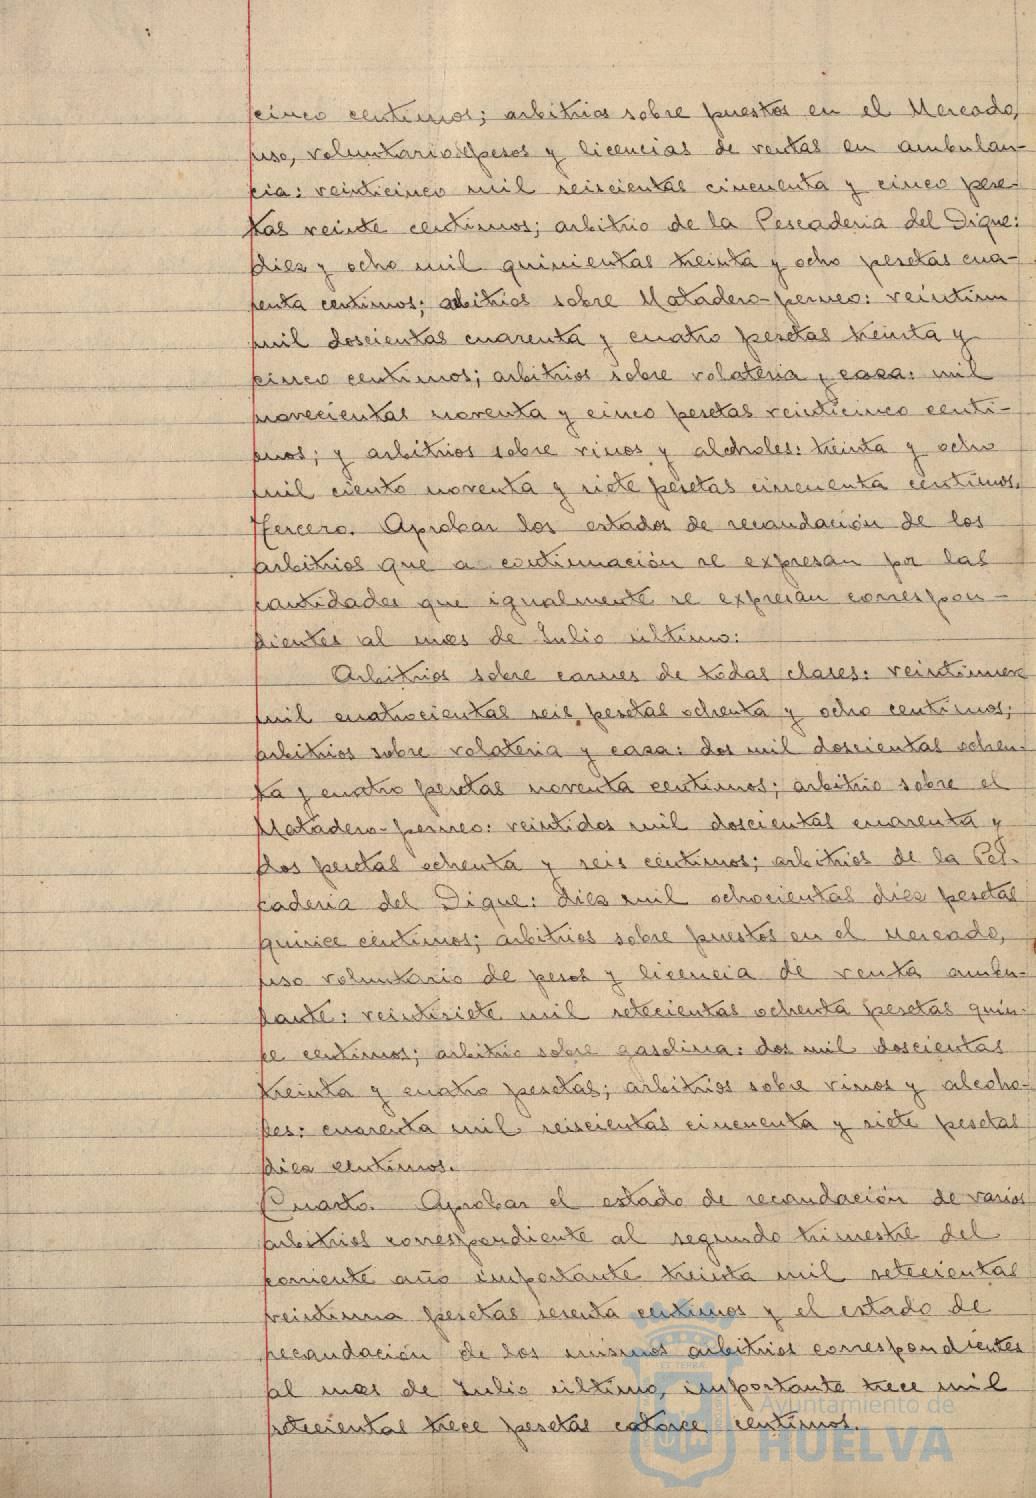 cinco centimos; arbitrios sobre puestos en el Mercado,
uso, voluntario de pesos y licencias de ventas en ambulan-
cia: veinticinco mil seiscientas cincuenta y cinco pese-
tas veinte centimos; arbitrio de la Pescaderia del Dique:
diez y ocho mil quinientas treinta y ocho pesetas cua-
renta centimos; arbitrios sobre Matadero-perneo: veintiun
mil doscientas cuarenta y cuatro pesetas treinta y
cinco centimos; arbitrios sobre volateria y caza: mil
novecientas noventa y cinco pesetas veinticinco centi-
mos; y arbitrios sobre vinos y alcholes: treinta y ocho
mil ciento noventa y siete pesetas cincuenta centimos.
Tercero. Aprobar los estados de recaudación de los
arbitrios que a continuación se expresan por las
cantidades que igualmente se expresan correspon-
dientes al mes de Julio último:
Arbitrios sobre carnes de todas clases: veintinueve
mil cuatrocientas seis pesetas ochenta y ocho centimos;
arbitrios sobre volateria y caza: dos mil doscientas ochen-
ta y cuatro pesetas noventa centimos; arbitrio sobre el
Matadero-perneo: veintidos mil doscientas cuarenta y
dos pesetas ochenta y seis centimos; arbitrios de la Pes-
caderia del Dique: diez mil ochocientas diez pesetas
quince centimos; arbitrios sobre puestos en el mercado,
uso voluntario de pesos y licencia de venta ambu-
lante: veintisiete mil setecientas ochenta pesetas quin-
ce centimos; arbitrio sobre gasolina: dos mil doscientas
treinta y cuatro pesetas; arbitrios sobre vinos y alcoho-
les: cuarenta mil seiscientas cincuenta y siete pesetas
diez centimos.
Cuarto. Aprobar el estado de recaudación de varios
arbitrios correspondiente al segundo trimestre del
corriente año importante treinta mil setecientas
veintiuna pesetas sesenta centimos y el estado de
recaudación de los mismos arbitrios correspondientes
al mes de Julio último, importante trece mil
setecientas trece pesetas catorce centimos.
Ayuntamiento de
HUELVA